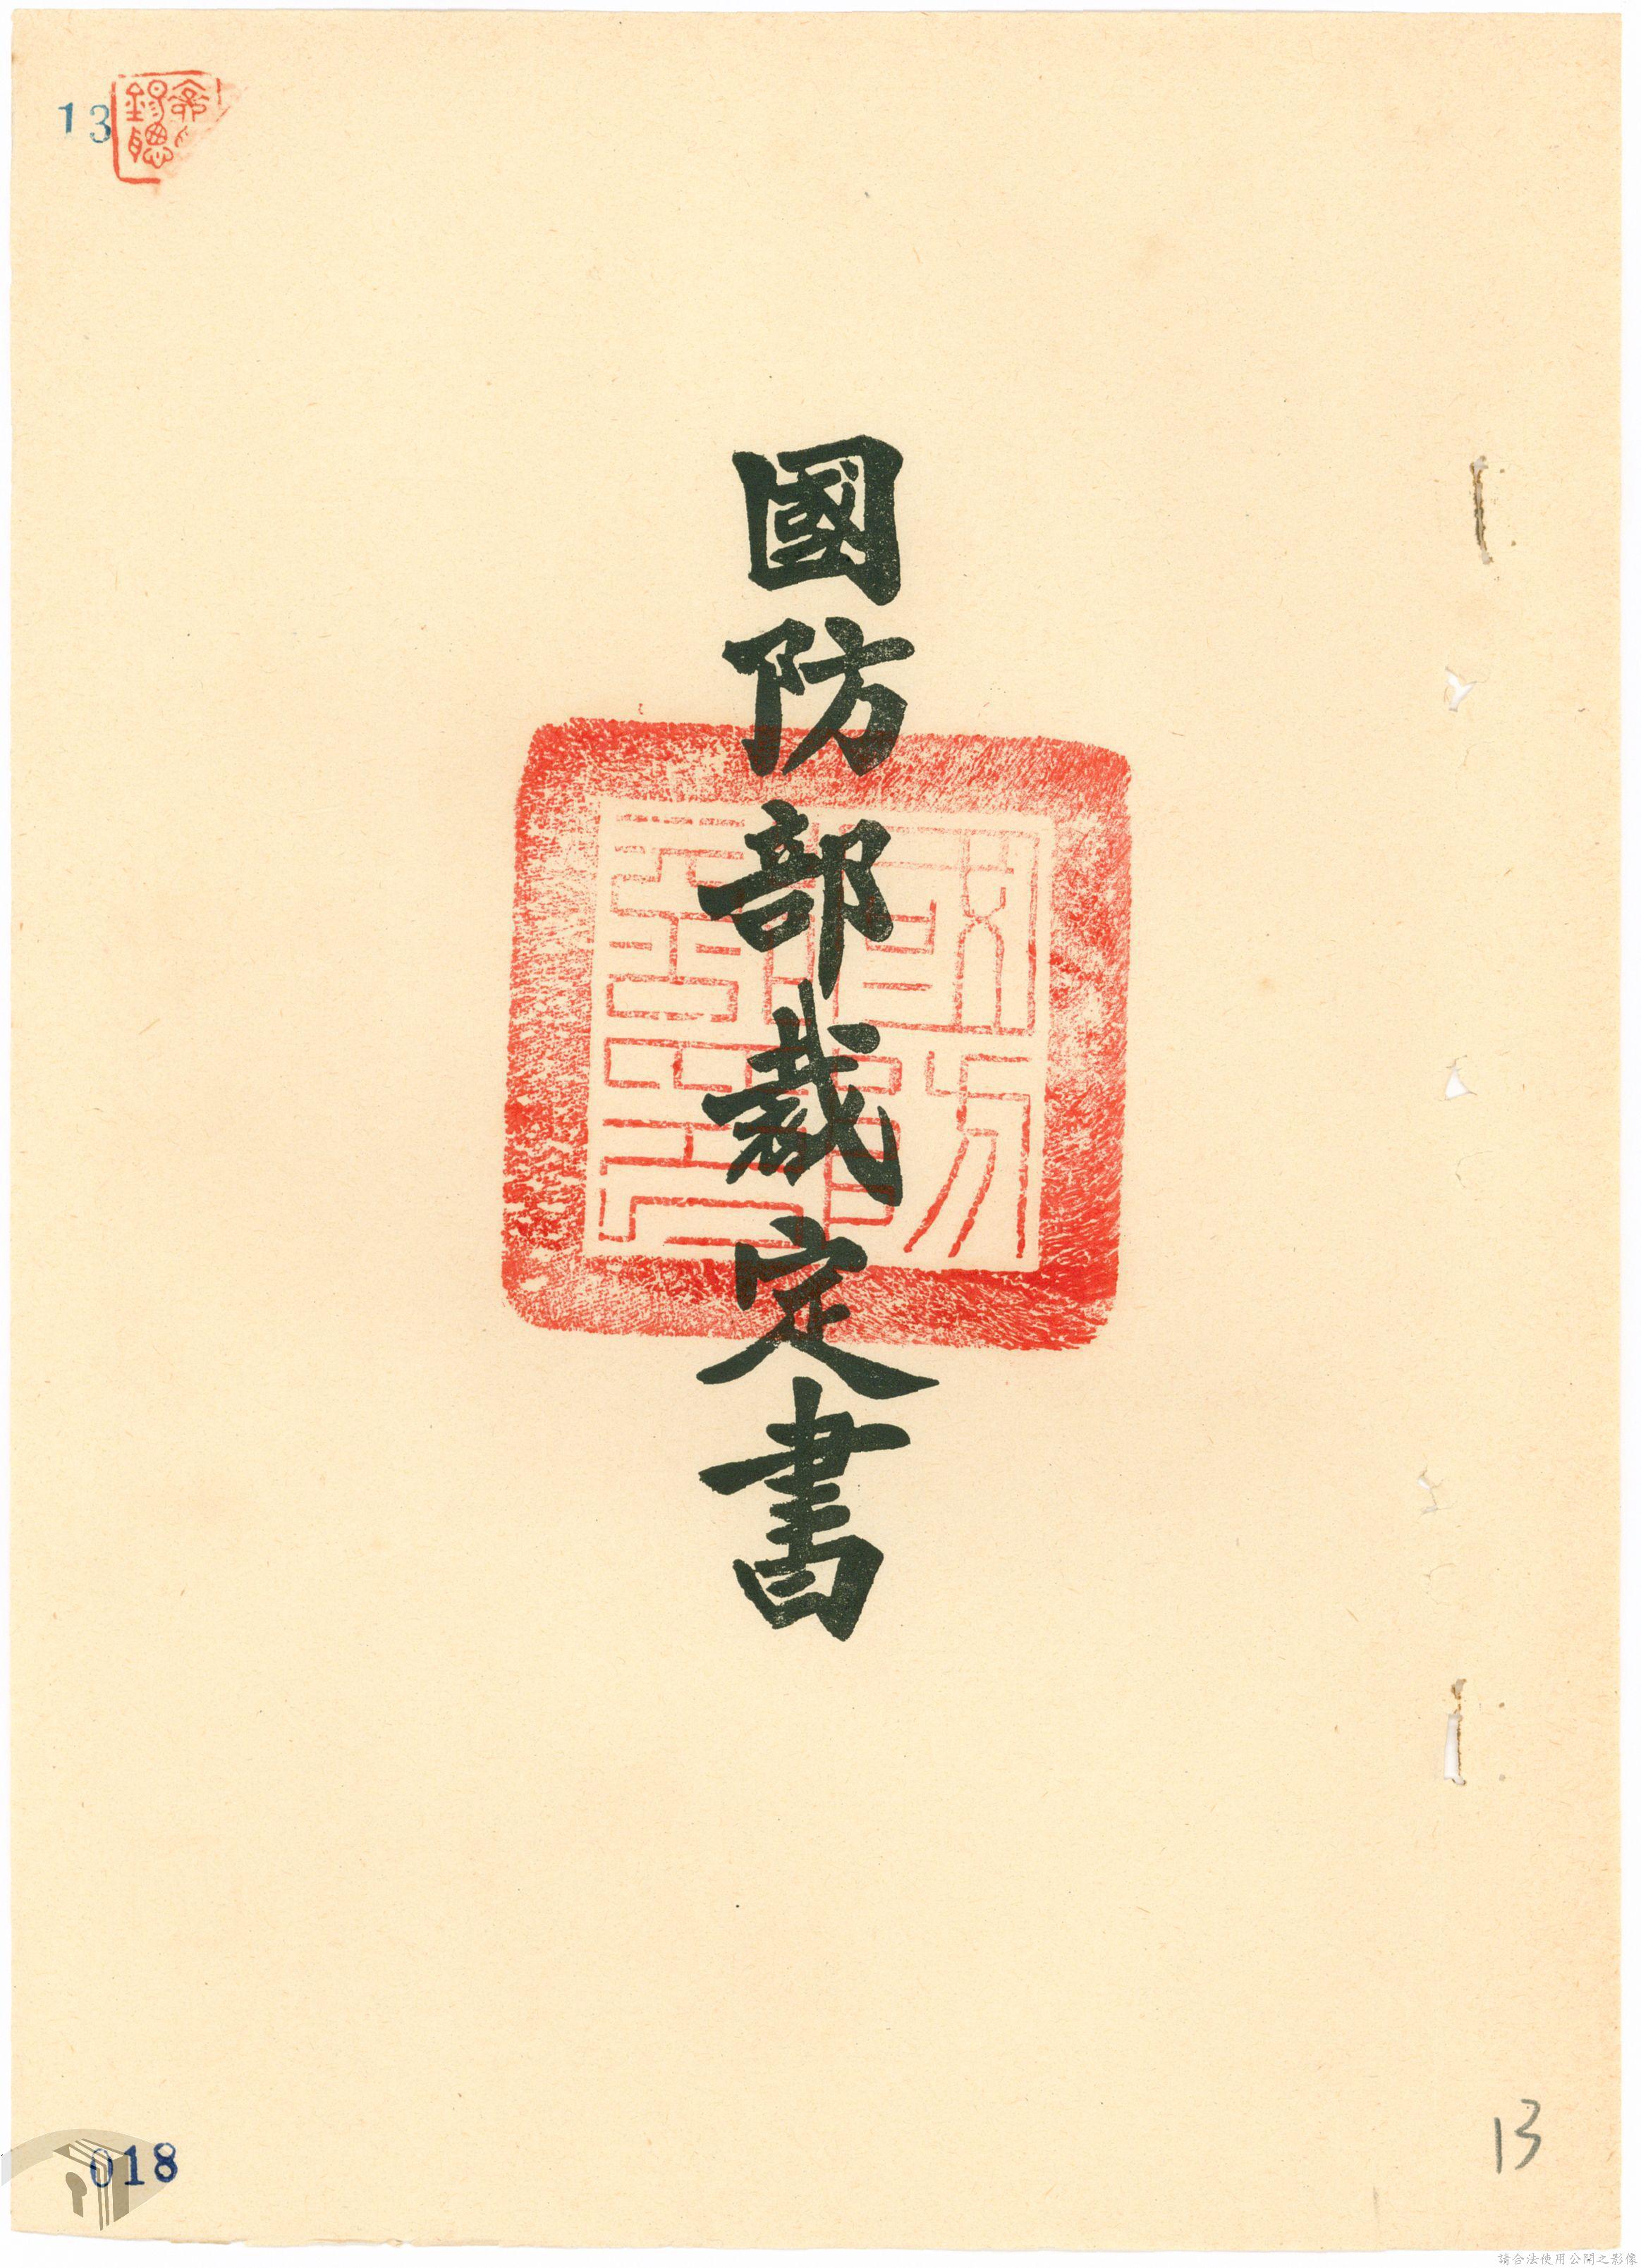 13
國防部裁定書
018
13
請合法使用公開之影像